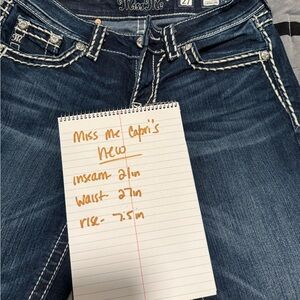 Miss Me
27
Miss Me Capri's
new
inseam- 21in
Waist- 27in
rise- 7.5in